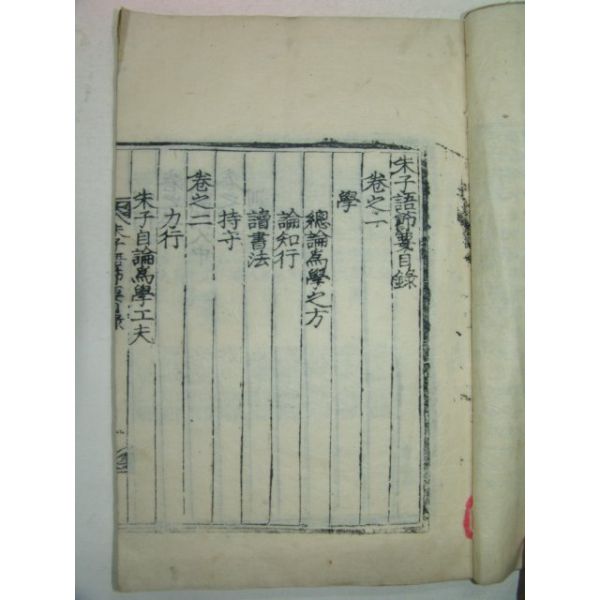 朱子語節要目錄
卷之一
學
總論為學之方
論知行
讀書法
持守
卷之二
力行
朱子自論為學工夫
朱子語節要目錄